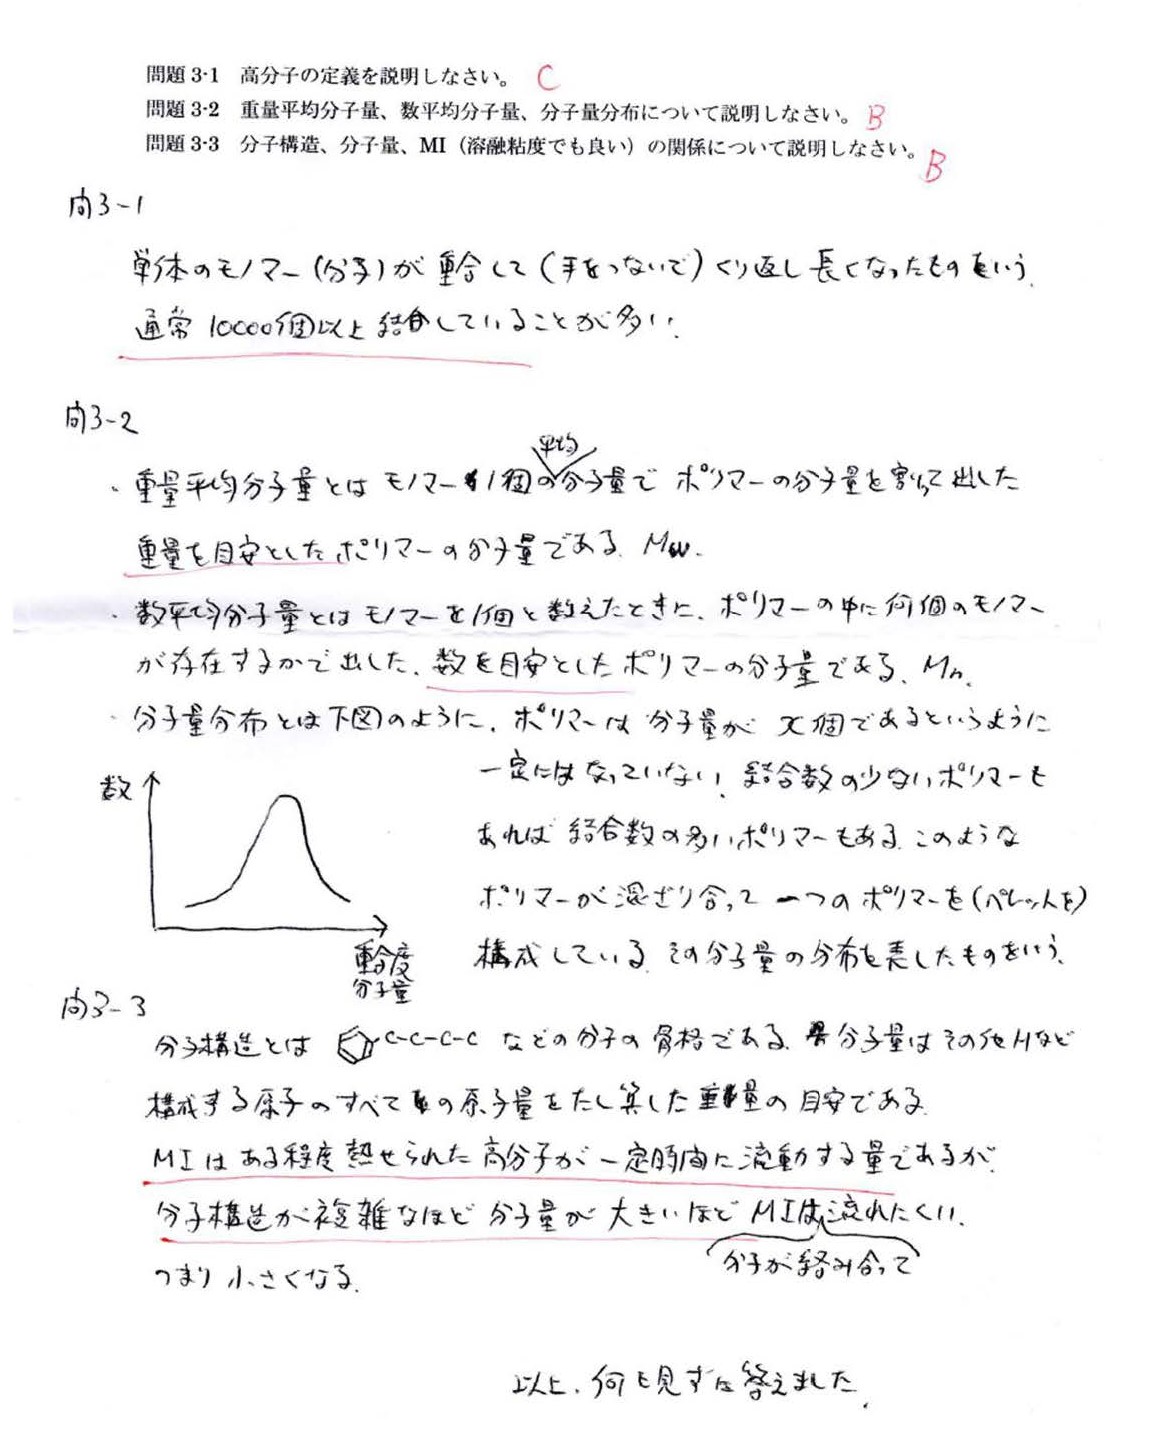 問題 3-1 高分子の定義を説明しなさい。 C
問題 3-2 重量平均分子量、数平均分子量、分子量分布について説明しなさい。 B
問題 3-3 分子構造、分子量、MI（溶融粘度でも良い）の関係について説明しなさい。 B
問3-1
単体のモノマー(分子)が重合して(手をつないで)くり返し長くなったものをいう.
通常 10000個以上結合していることが多い.
問3-2
平均
・重量平均分子量とはモノマー1個の分子量でポリマーの分子量を割って出した
重量を目安としたポリマーの分子量である. Mw.
・数平均分子量とはモノマーを1個と数えたときに、ポリマーの中に何個のモノマー
が存在するかで出した、数を目安としたポリマーの分子量である、Mn.
・分子量分布とは下図のように、ポリマーは分子量がx個であるというように
一定にはなっていない. 結合数の少ないポリマーも
あれば結合数の多いポリマーもある. このような
ポリマーが混ざり合って一つのポリマーを(ペレットを)
構成している. その分子量の分布を表したものをいう.
数
重合度
分子量
問3-3
分子構造とは C-C-C-C などの分子の骨格である. 分子量はその他Hなど
構成する原子のすべての原子量をたし算した重量の目安である.
MIはある程度熱せられた高分子が一定時間に流動する量であるが.
分子構造が複雑なほど分子量が大きいほどMIは流れにくい.
分子が絡み合って
つまり小さくなる.
以上、何も見ずに答えました.